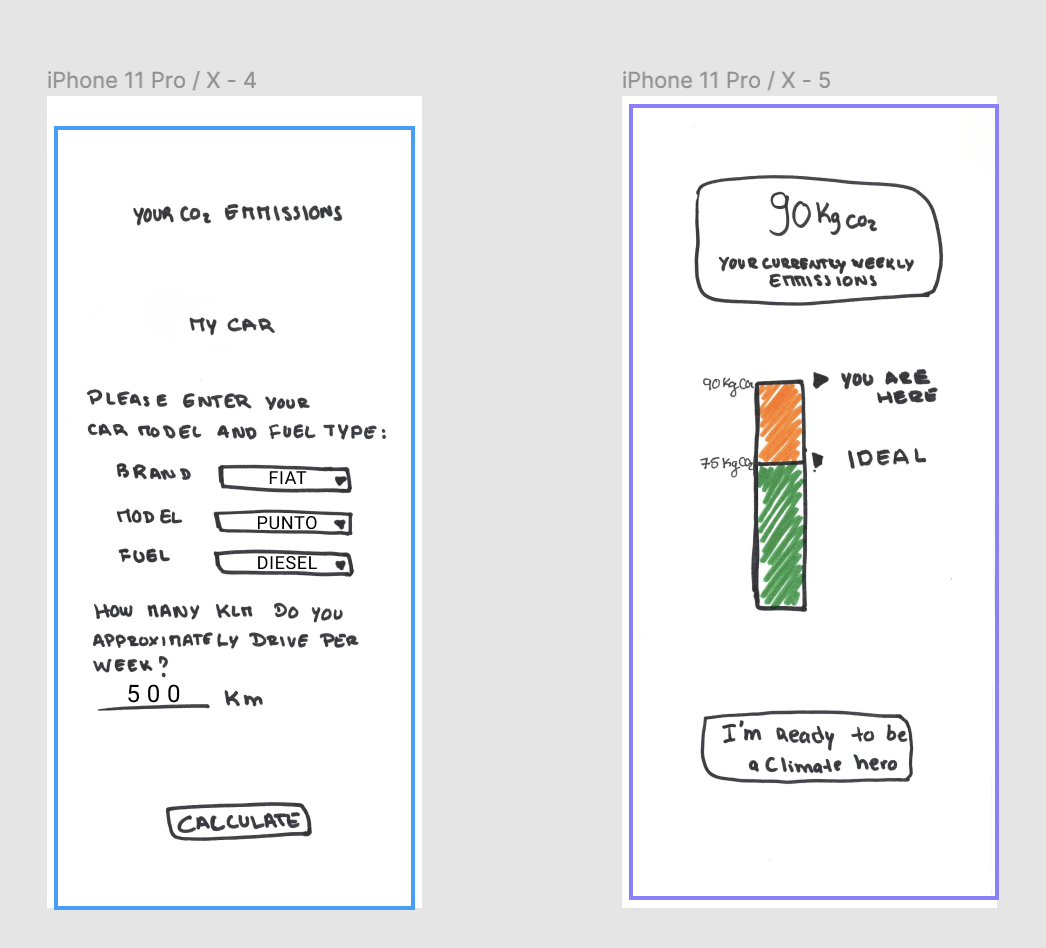 iPhone 11 Pro / X - 4
YOUR CO2 EMMISSIONS
MY CAR
PLEASE ENTER YOUR
CAR MODEL AND FUEL TYPE:
BRAND FIAT
MODEL PUNTO
FUEL DIESEL
HOW MANY KLM DO YOU
APPROXIMATELY DRIVE PER
WEEK?
500 Km
CALCULATE
iPhone 11 Pro / X - 5
90 Kg CO2
YOUR CURRENTLY WEEKLY
EMMISSIONS
90 Kg CO2 YOU ARE
HERE
75 Kg CO2 IDEAL
I'm Ready to be
a Climate hero